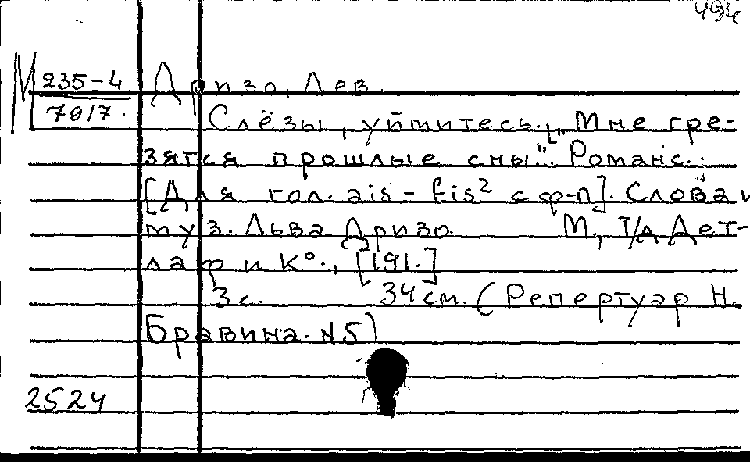 494
М 235-4
7017.
Аризо, Лев.
Слёзы, уймитесь. „Мне гре-
зятся прошлые сны". Романс.
[Для гол. ais - fis² с ф-п]. Слова и
муз. Льва Аризо. М, Т/Д Дет-
лаф и К°., [191.]
3 с. 34 см. (Репертуар Н.
Бравина. №5)
2524